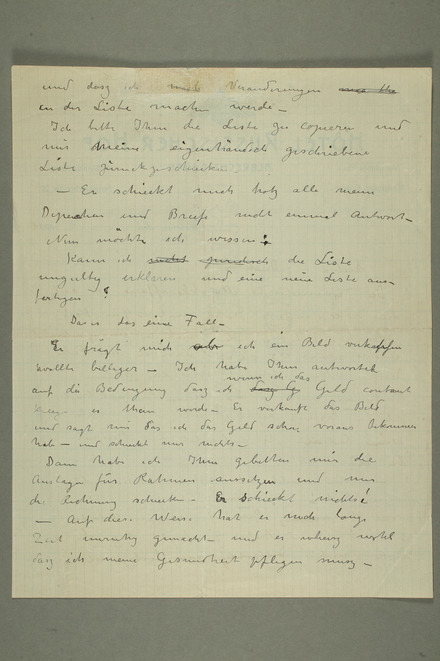 und dasz ich noch Veränderungen
an der Liste machen werde –
Ich bitte Ihm die Liste zu copieren und
mir meine eigenhändisch geschriebene
Liste zurückgeschicken
– Er schieckt mich trotz alle meine
Depechen und Briefe nicht einmal Antwort –
Nun möchte ich wissen:
Kann ich nicht juridisch die Liste
ungultig erklaren und eine neue Liste aus-
fertigen?
Das is das eine Fall –
Er frägt mich ob ich ein Bild verkaufen
wollte billiger – Ich habe Ihm antwortet
auf die Bedingung dasz ich wenn ich das Geld contant
kriege es thun werde – Er verkauft das Bild
und sagt mir das ich das Geld schon voraus bekommen
hab – und schiekt mir nichts –
Dann habe ich Ihm gebetten mir die
Auslagen fürs Rahmen aussetzen und mir
die Rechnung schicken – Er schieckt nichts!
– Auf diese Weise hat er mich lange
Zeit unruhig gemacht und er weisz wohl
dasz ich meine Gesundheit pflegen musz –